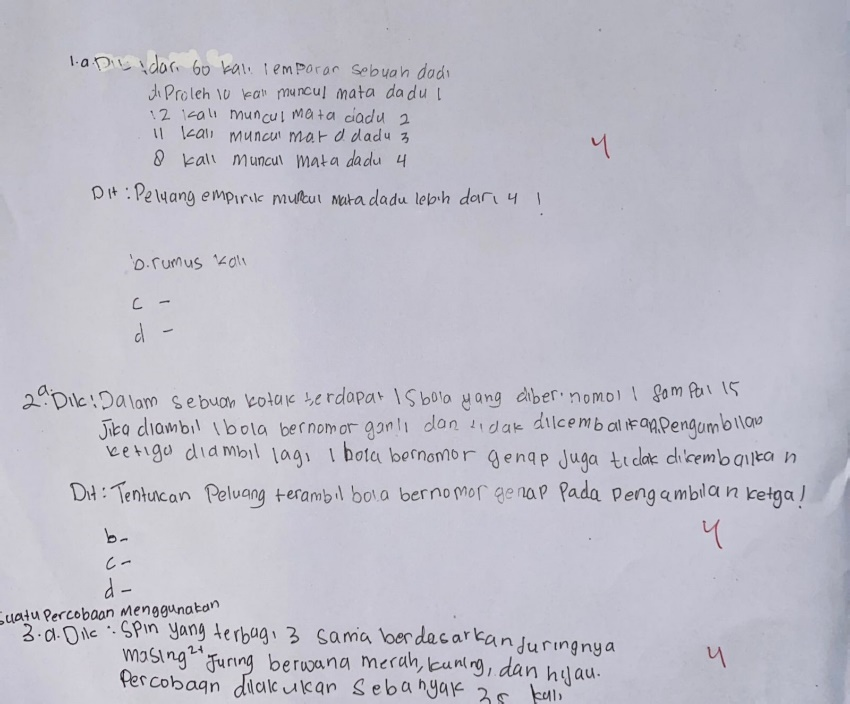 1.a. Dik : dari 60 kali lemparan sebuah dadu
diproleh 10 kali muncul mata dadu 1
12 kali muncul mata dadu 2
11 kali muncul mata dadu 3
8 kali muncul mata dadu 4
4
Dit : Peluang empirik muncul mata dadu lebih dari 4 !
b. rumus kali
c -
d -
2.a. Dik : Dalam sebuah kotak terdapat 15 bola yang diberi nomor 1 sampai 15
Jika diambil 1 bola bernomor ganjil dan tidak dikembalikan, Pengambilan
ketiga diambil lagi 1 bola bernomor genap juga tidak dikembalikan
Dit : Tentukan Peluang terambil bola bernomor genap Pada Pengambilan ketga!
b -
4
c -
d -
suatu Percobaan Menggunakan
3.a. Dik : Spin yang terbagi 3 sama berdasarkan Juringnya
masing²+ Juring berwana merah, kuning, dan hijau.
4
Percobaan dilakukan sebanyak 35 kali